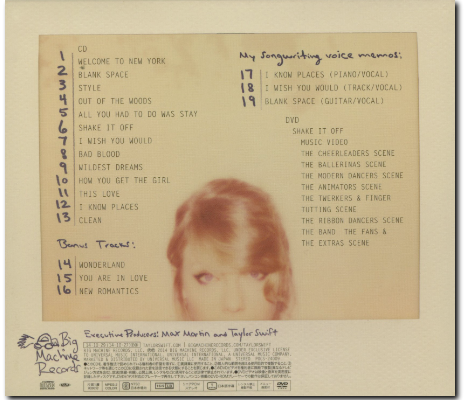 CD
1 WELCOME TO NEW YORK
2 BLANK SPACE
3 STYLE
4 OUT OF THE WOODS
5 ALL YOU HAD TO DO WAS STAY
6 SHAKE IT OFF
7 I WISH YOU WOULD
8 BAD BLOOD
9 WILDEST DREAMS
10 HOW YOU GET THE GIRL
11 THIS LOVE
12 I KNOW PLACES
13 CLEAN
Bonus Tracks:
14 WONDERLAND
15 YOU ARE IN LOVE
16 NEW ROMANTICS
My songwriting voice memos:
17 I KNOW PLACES (PIANO/VOCAL)
18 I WISH YOU WOULD (TRACK/VOCAL)
19 BLANK SPACE (GUITAR/VOCAL)
DVD
SHAKE IT OFF
MUSIC VIDEO
THE CHEERLEADERS SCENE
THE BALLERINAS SCENE
THE MODERN DANCERS SCENE
THE ANIMATORS SCENE
THE TWERKERS & FINGER
TUTTING SCENE
THE RIBBON DANCERS SCENE
THE BAND, THE FANS &
THE EXTRAS SCENE
Executive Producers: Max Martin and Taylor Swift
Big
Machine
Records